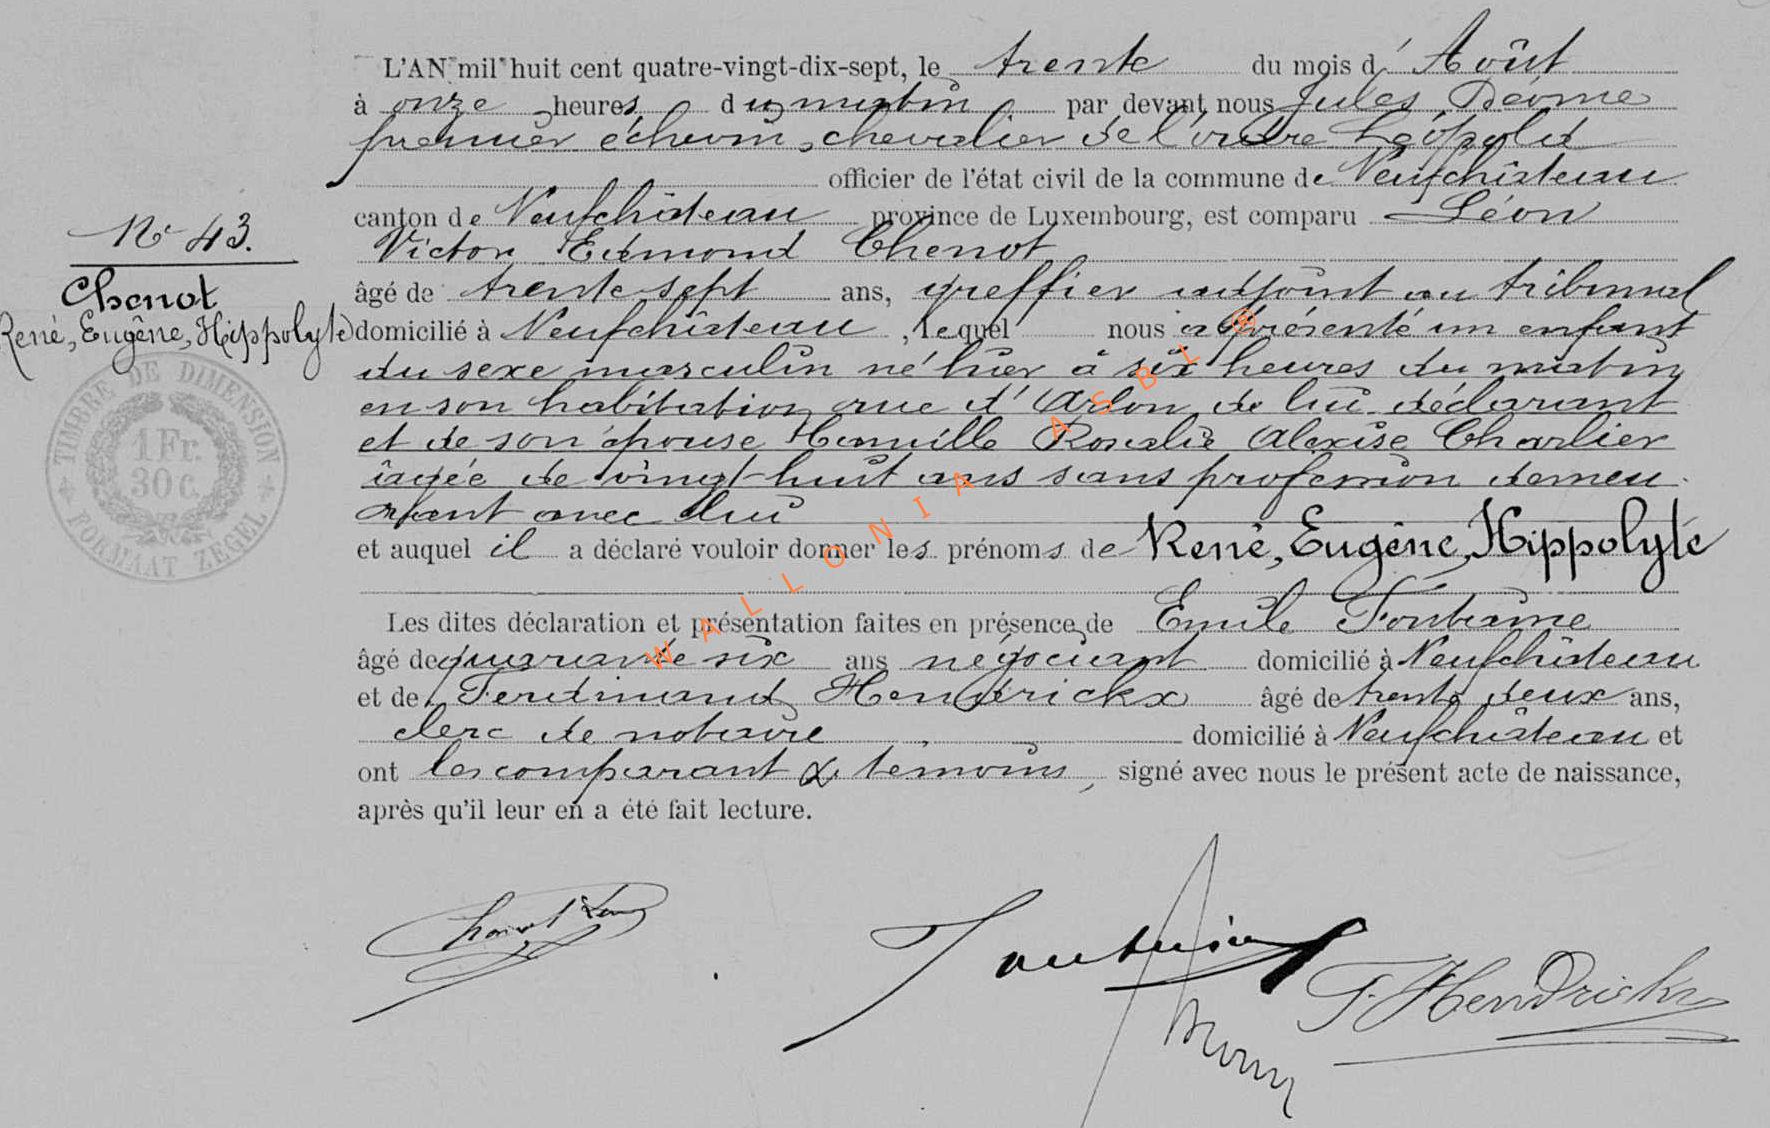 L'AN mil huit cent quatre-vingt-dix-sept, le trente du mois d' Août
à onze heures du matin par devant nous Jules
premier échevin, chevalier de l'ordre Léopold
officier de l'état civil de la commune de Neufchâteau
canton de Neufchâteau province de Luxembourg, est comparu Léon
Victor Edmond Chenot
âgé de trente-sept ans, greffier adjoint au tribunal
domicilié à Neufchâteau, lequel nous a présenté un enfant
du sexe masculin né hier à six heures du matin
en son habitation rue d'Arlon de lui déclarant
et de son épouse Rosalie Alexise Charlier
âgée de vingt-huit ans sans profession demeu
rant avec lui
et auquel il a déclaré vouloir donner les prénoms de René, Eugène, Hippolyte
Les dites déclaration et présentation faites en présence de Emile Fontaine
âgé de quarante six ans négociant domicilié à Neufchâteau
et de Ferdinand Hendrickx âgé de trente deux ans,
clerc de notaire, domicilié à Neufchâteau et
ont les comparant & témoins, signé avec nous le présent acte de naissance,
après qu'il leur en a été fait lecture.
N° 43.
Chenot
René, Eugène, Hippolyte
TIMBRE DE DIMENSION
1 Fr.
30 c.
FORMAAT ZEGEL
WALLONIA ASBL ®
F. Hendrickx